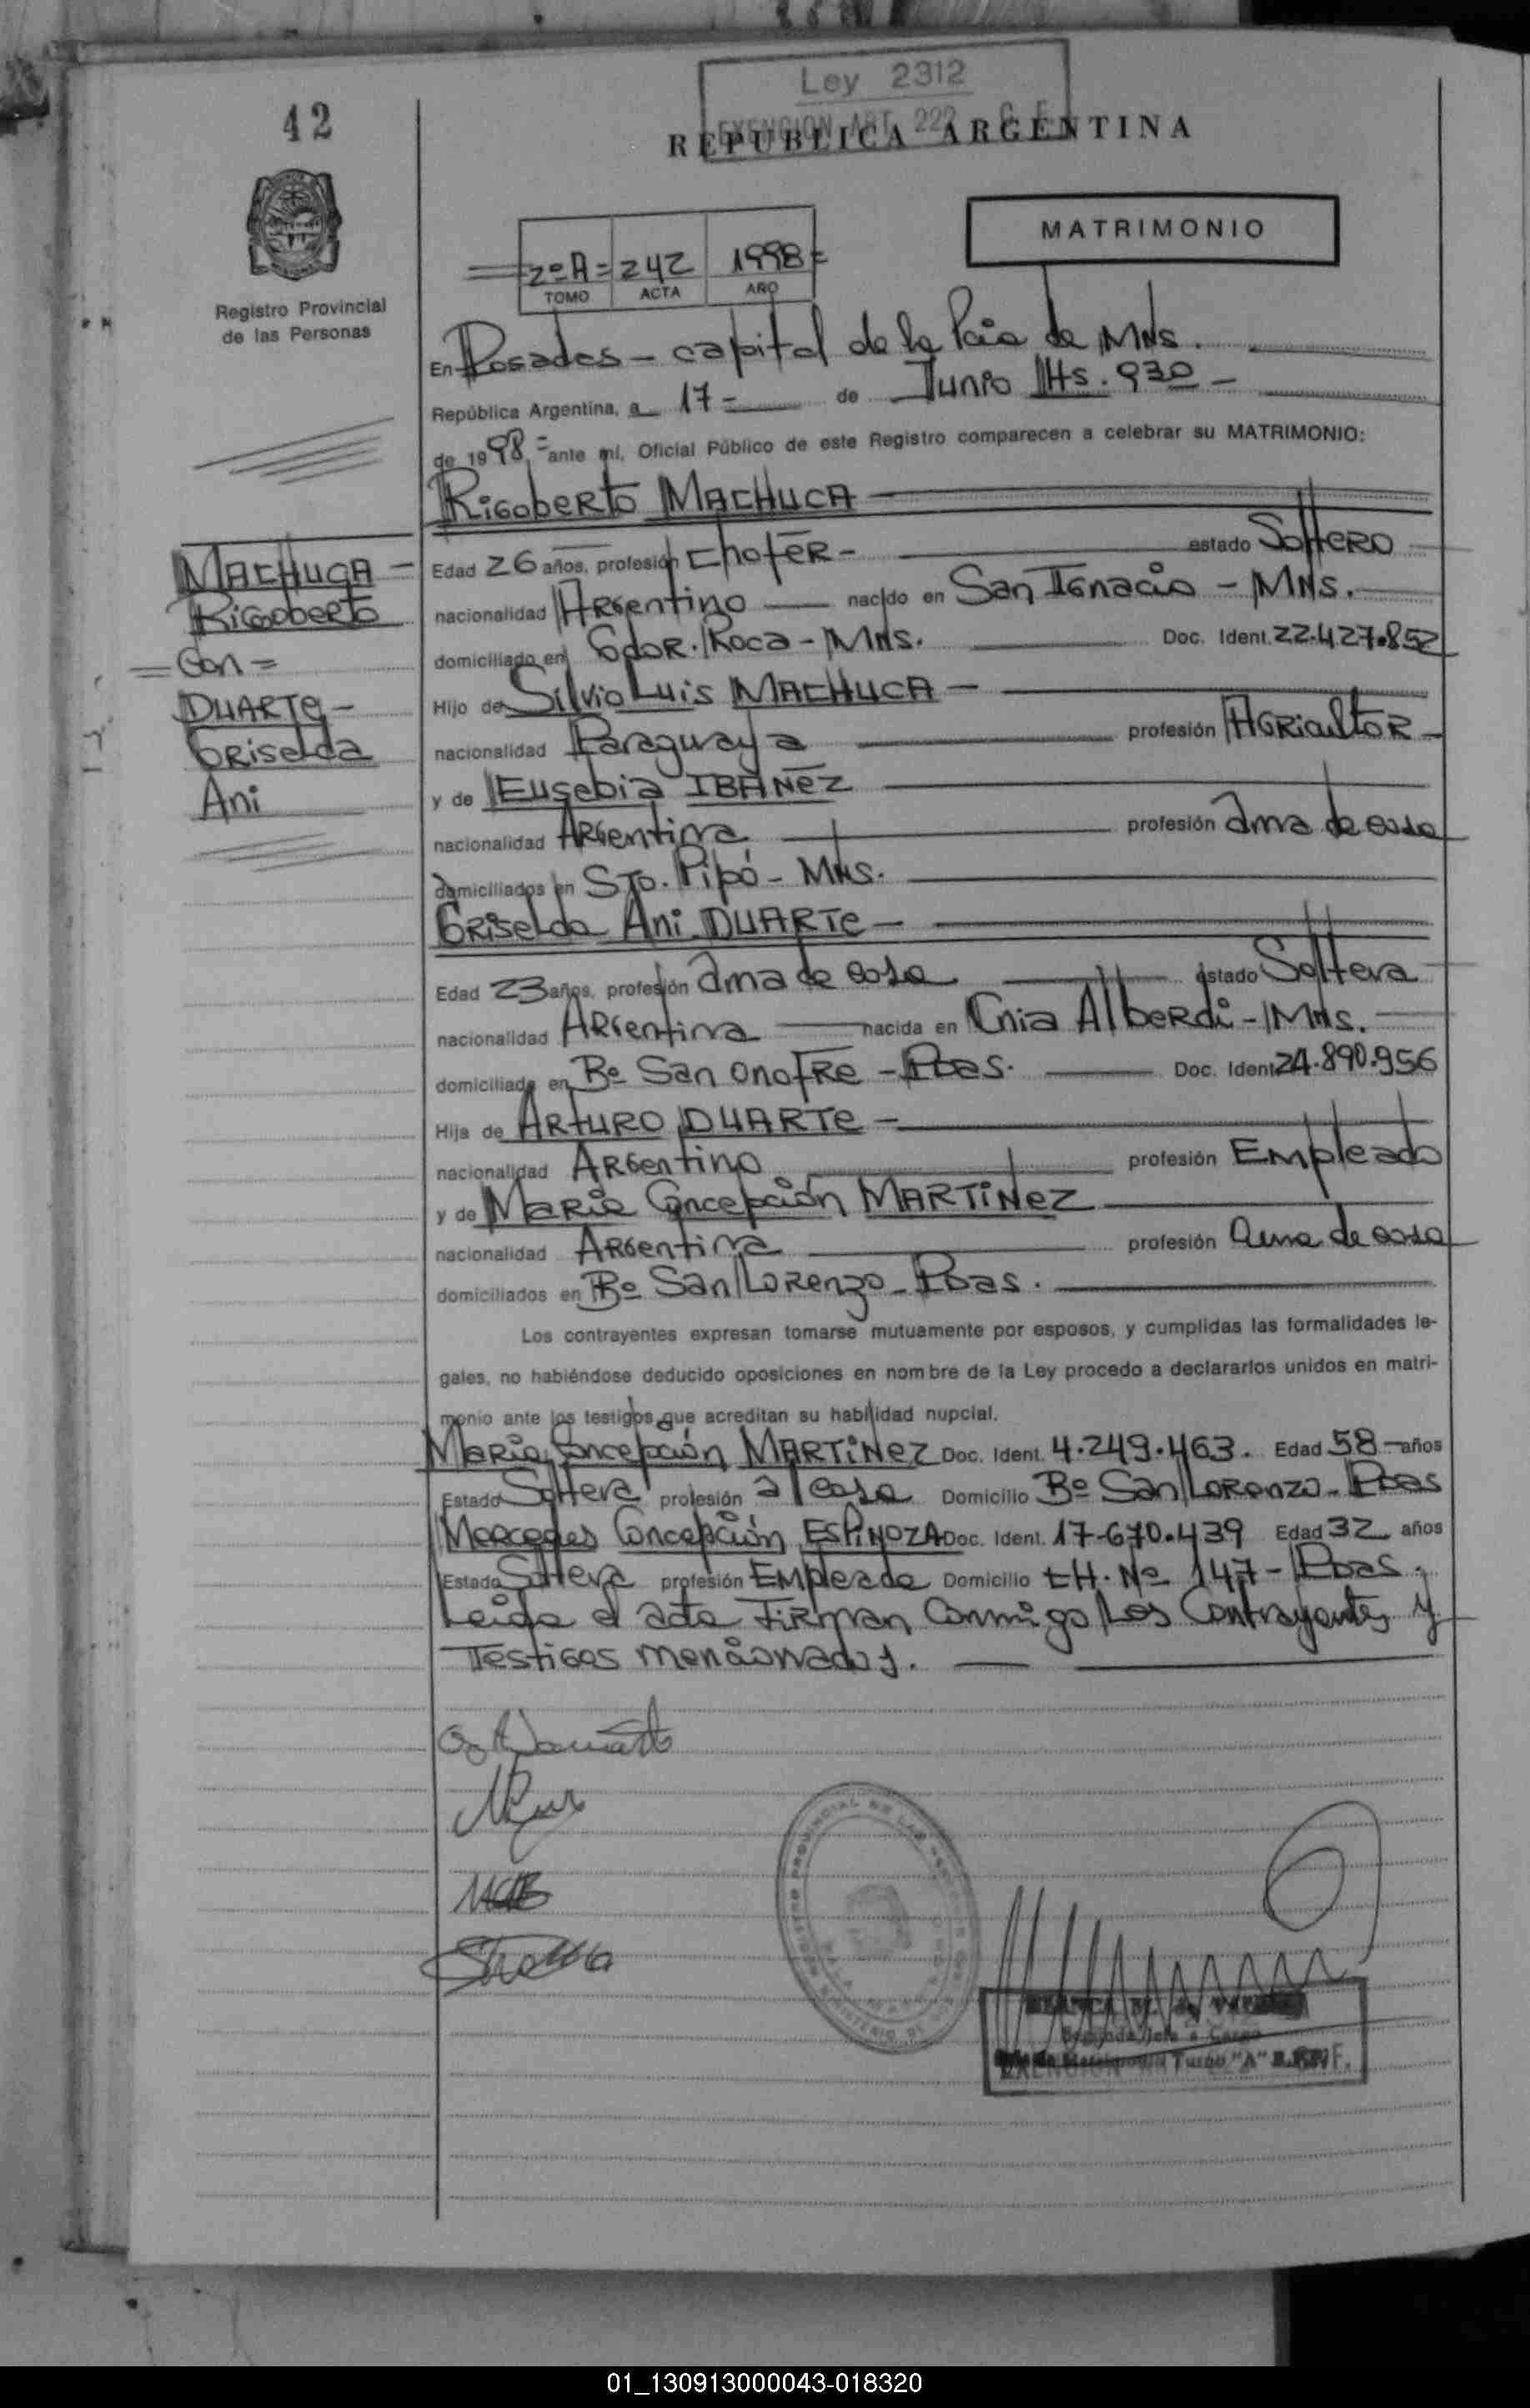 Ley 2312
EXENCION ART. 222 C. F.
42
REPUBLICA ARGENTINA
MATRIMONIO
2º A = 242 1998 =
TOMO ACTA AÑO
Registro Provincial
de las Personas
En Posadas - capital de la Pcia de Mns.
República Argentina, a 17 - de Junio Hs. 930 -
de 1998, = ante mí, Oficial Público de este Registro comparecen a celebrar su MATRIMONIO:
Rigoberto MACHUCA
MACHUCA -
Rigoberto
= Con =
DUARTE -
Griselda
Ani
Edad 26 años, profesión Chofer - estado Soltero
nacionalidad Argentino nacido en San Ignacio - Mns.
domiciliado en Gdor. Roca - Mns. Doc. Ident. 22.427.852
Hijo de Silvio Luis MACHUCA -
nacionalidad Paraguaya profesión Agricultor -
y de Eusebia IBAÑEZ
nacionalidad Argentina profesión ama de casa
domiciliados en Sto. Pipó - Mns.
Griselda Ani DUARTE -
Edad 23 años, profesión ama de casa estado Soltera
nacionalidad Argentina nacida en Cnia Alberdi - Mns.
domiciliada en Bº San Onofre - Pdas. Doc. Ident. 24.890.956
Hija de Arturo DUARTE -
nacionalidad Argentino profesión Empleado
y de Maria Concepción MARTINEZ
nacionalidad Argentina profesión ama de casa
domiciliados en Bº San Lorenzo - Pdas.
Los contrayentes expresan tomarse mutuamente por esposos, y cumplidas las formalidades le-
gales, no habiéndose deducido oposiciones en nombre de la Ley procedo a declararlos unidos en matri-
monio ante los testigos que acreditan su habilidad nupcial.
Maria Concepción MARTINEZ Doc. Ident. 4.249.463. Edad 58 - años
Estado Soltera profesión a/casa Domicilio Bº San Lorenzo - Pdas
Mercedes Concepción ESPINOZA Doc. Ident. 17-670.439 Edad 32 años
Estado Soltera profesión Empleada Domicilio CH. Nº 147 - Pdas.
Leida el acta firman conmigo los contrayentes y
testigos mencionados.
REGISTRO PROVINCIAL DE LAS
Segunda Jefe a Cargo
Turno "A"
01_130913000043-018320